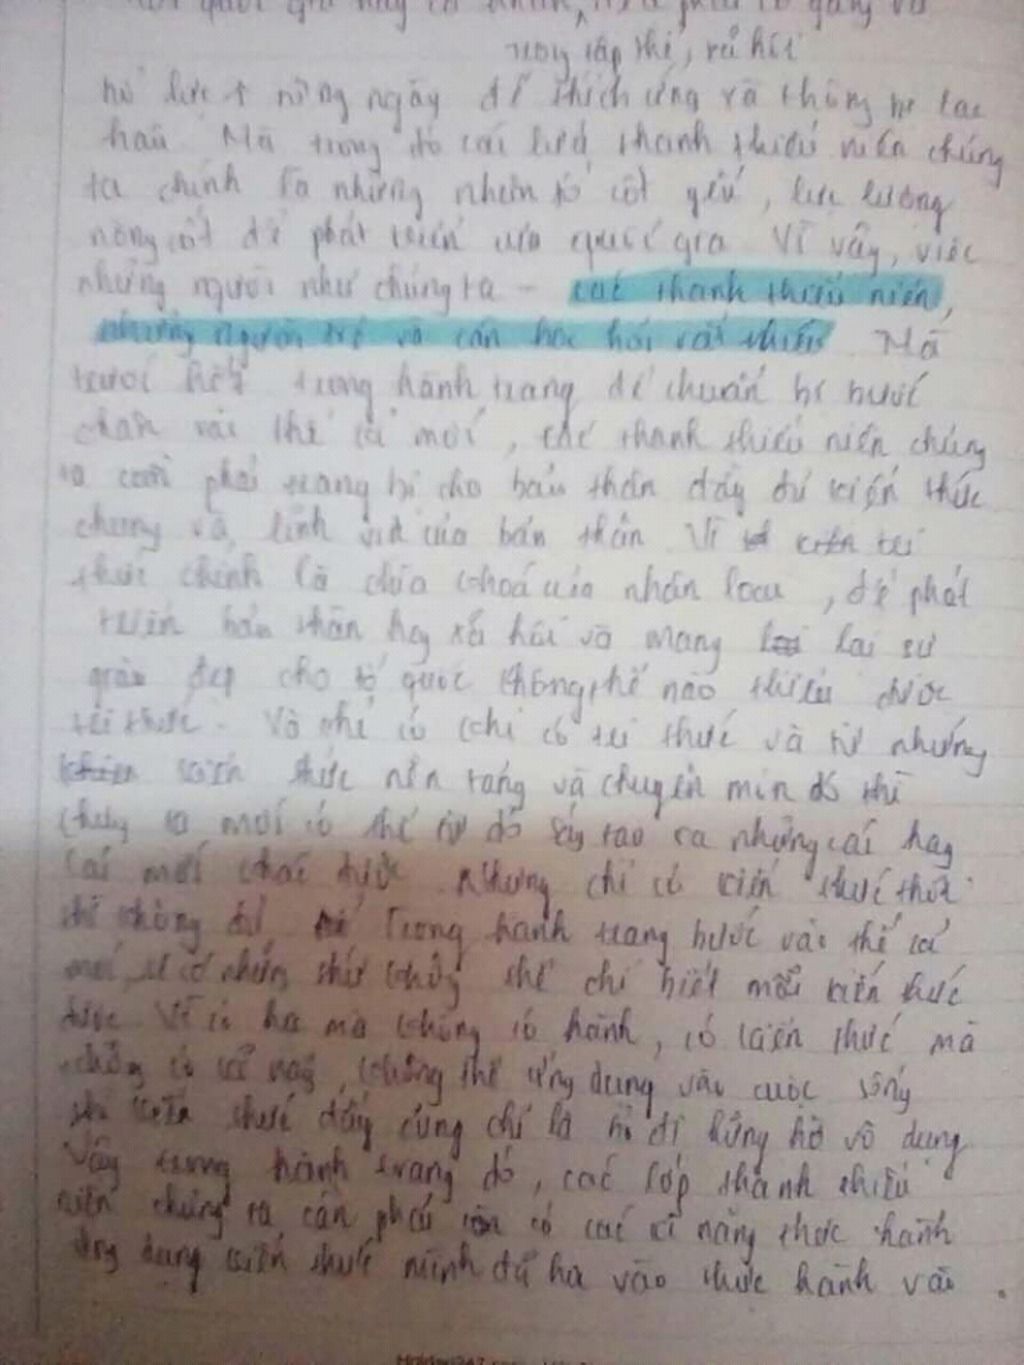 trong tập thể, xã hội
nỗ lực từng ngày để thích ứng và không bị lạc
hậu. Mà trong đó các lứa thanh thiếu niên chúng
ta chính là những nhân tố cốt yếu, lực lượng
nòng cốt để phát triển của quốc gia. Vì vậy, việc
những người như chúng ta - các thanh thiếu niên,
những người trẻ và cần học hỏi rất nhiều. Mà
trước hết trong hành trang để chuẩn bị bước
chân vào thế kỉ mới, các thanh thiếu niên chúng
ta cần phải trang bị cho bản thân đầy đủ kiến thức
chung và lĩnh vực của bản thân. Vì tri
thức chính là chìa khoá của nhân loại, để phát
triển bản thân hay xã hội và mang lại sự
giàu đẹp cho tổ quốc không thể nào thiếu được
tri thức. Và chỉ có khi có tri thức và từ những
kiến thức nền tảng và chuyên môn đó thì
chúng ta mới có thể từ đó sáng tạo ra những cái hay
cái mới khác được. Nhưng chỉ có kiến thức thôi
thì không đủ. Trong hành trang bước vào thế kỉ
mới, không thể chỉ biết mỗi kiến thức
được. Vì có học mà không có hành, có kiến thức mà
chẳng có kĩ năng, không thể ứng dụng vào cuộc sống
thì kiến thức đấy cũng chỉ là hờ vô dụng
Vậy trong hành trang đó, các lớp thanh thiếu
niên chúng ta cần phải có các kĩ năng thực hành
ứng dụng kiến thức mình đã học vào thực hành vào